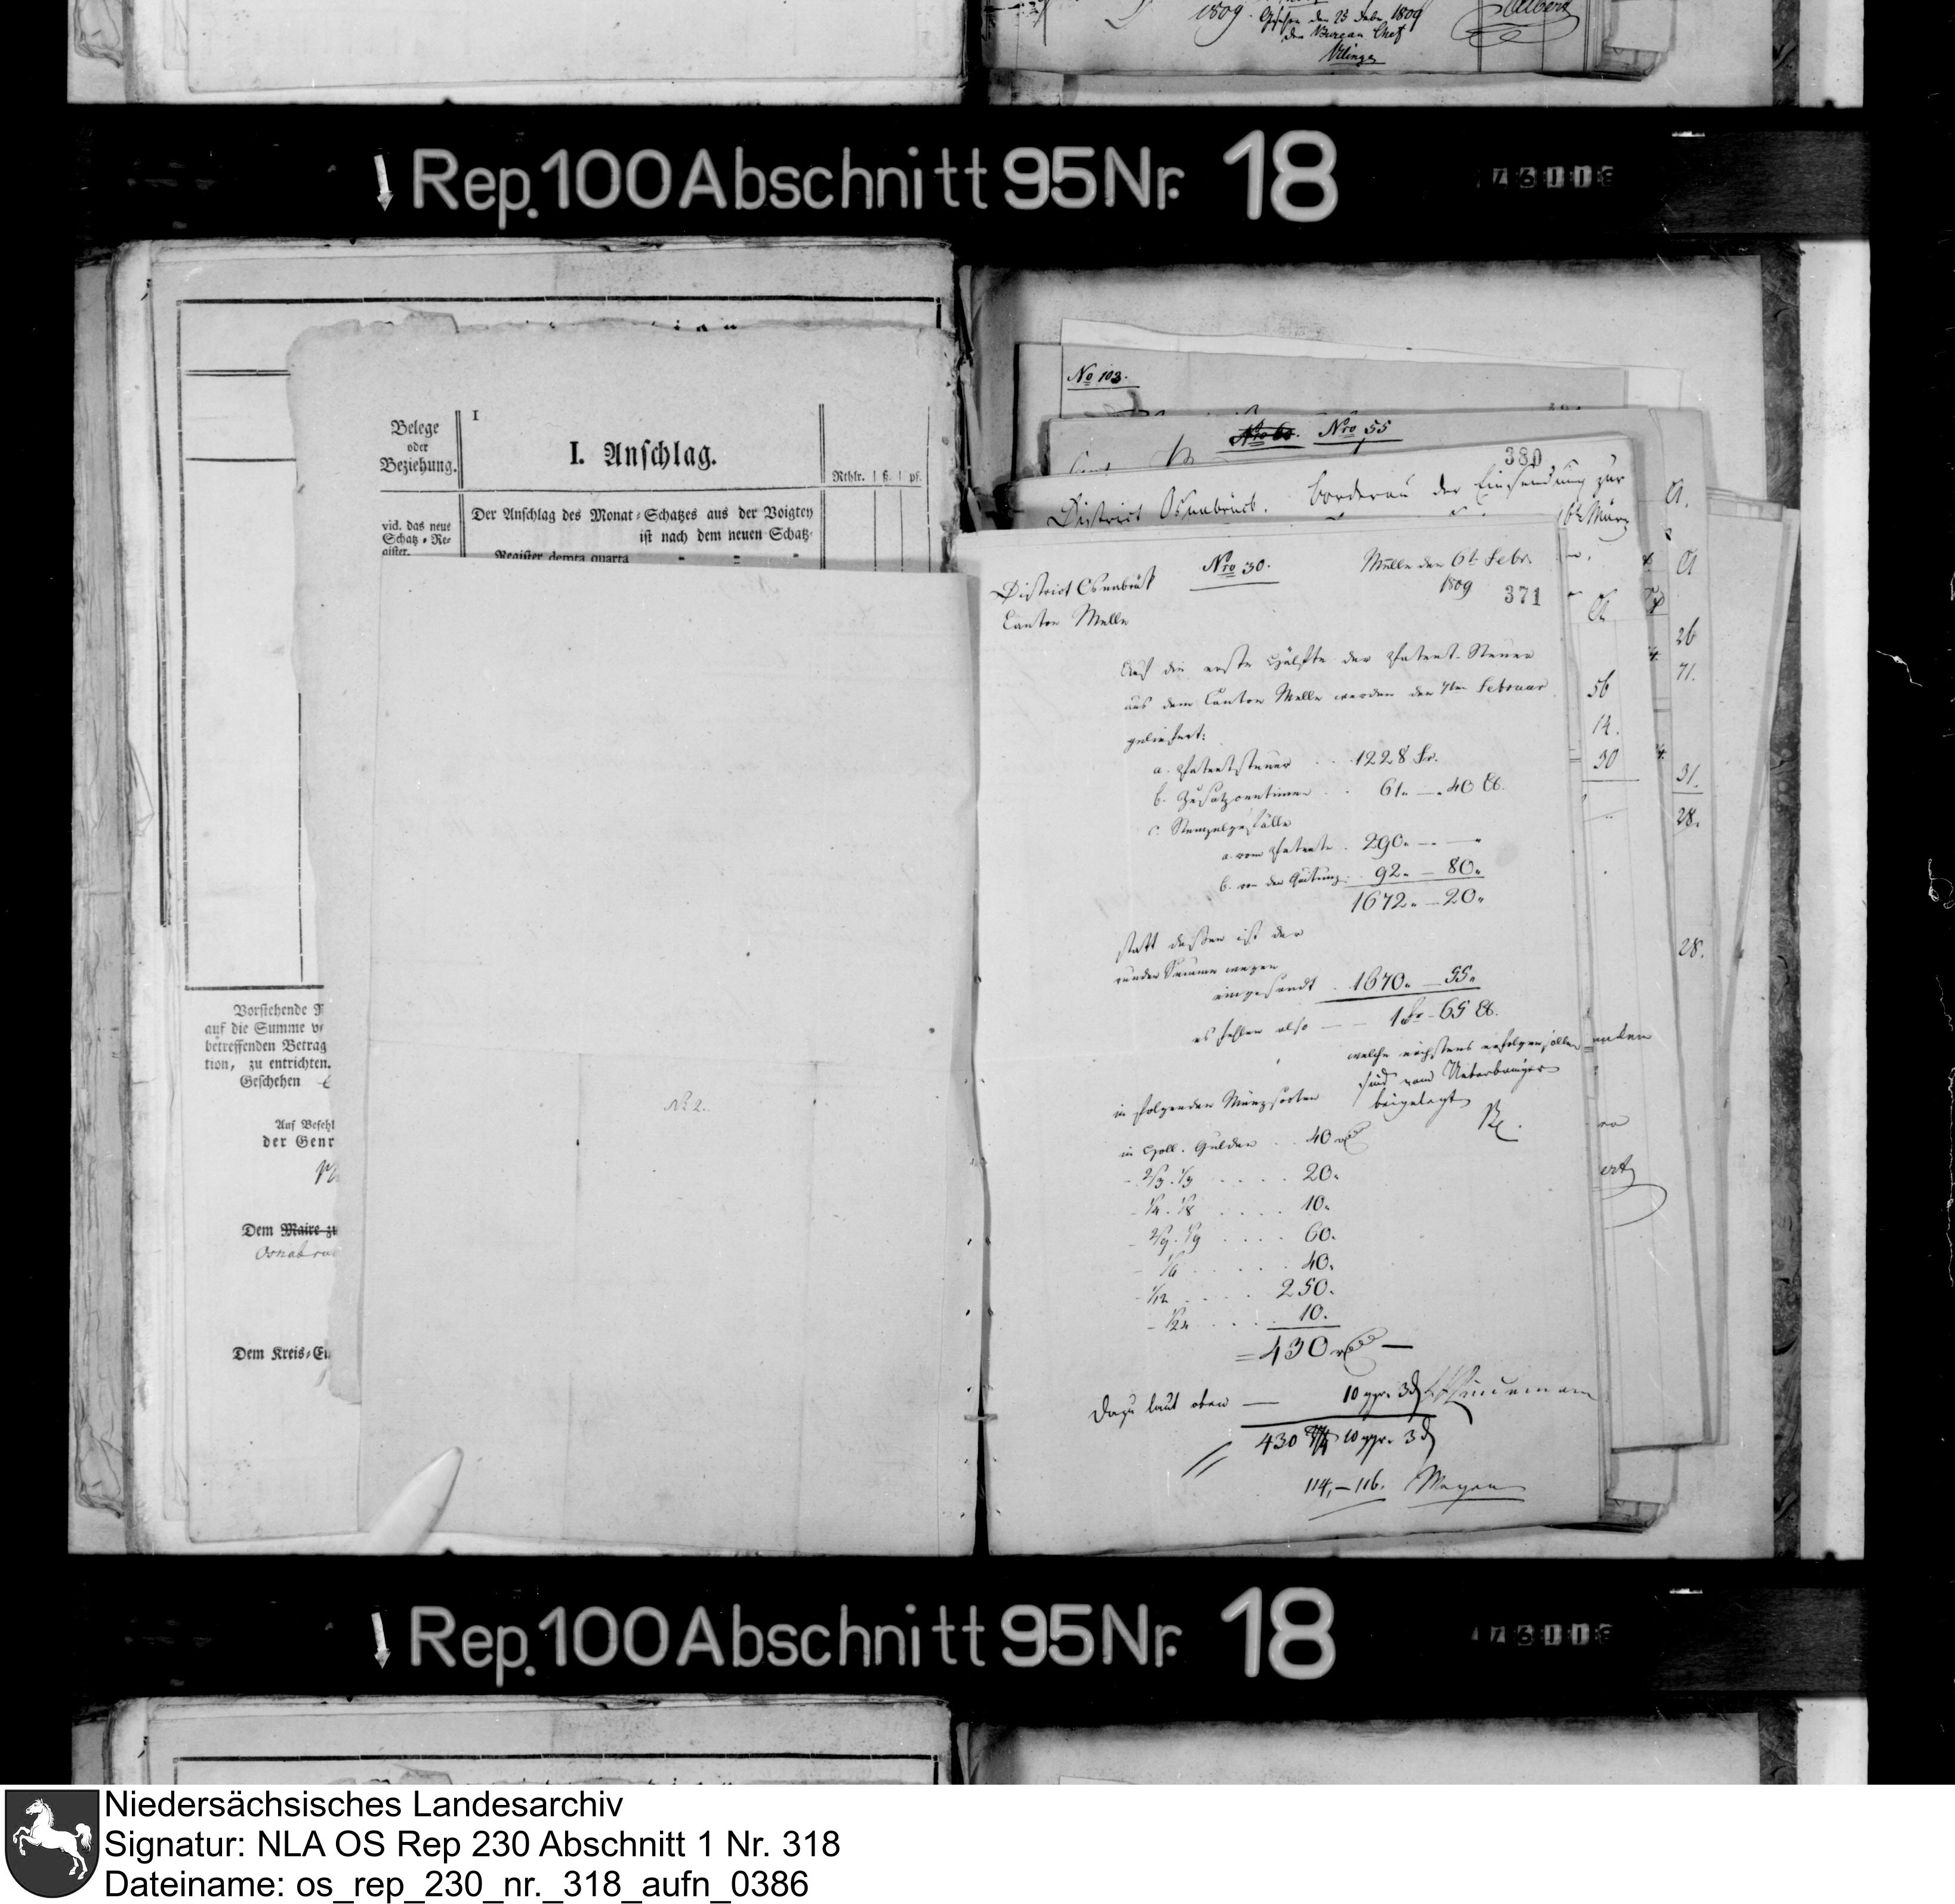 1809. Geschehen den 23 Febr. 1809
der Bureau Chef
Rep. 100 Abschnitt 95 Nr. 18
Belege
oder
Beziehung.
I
I. Anschlag.
Rthlr. ß. pf.
vid. das neue
Schatz-Re-
gister.
Der Anschlag des Monat-Schatzes aus der Voigtey
ist nach dem neuen Schatz-
Register demta quarta
Vorstehende
auf die Summe
betreffenden Betrag
tion, zu entrichten.
Geschehen
Auf Befehl
der Gen
Dem Maire zu
Osnabrü
Dem Kreis-Ei
No 2.
No 103.
Nro 55
380
District Osnabrück. Borderau der Einsendung zur
März
Nro 30.
Melle den 6t Febr.
1809
371
District Osnabrük
Canton Melle
Auf die erste Hälfte der Patent-Steuer
aus dem Canton Melle werden den 7ten Februar
geliefert:
a. Patentsteuer . . 1228 Fr.
b. Zusatzcentimen . . 61. — 40 Ct.
c. Stempelgefälle
a. vom Patente . 290. — —
b. von der Quitung . 92. — 80.
1672. — 20.
statt dessen ist der
runden Summe wegen
eingesandt . 1670. — 55.
es fehlen also — — 1 Fr — 65 Ct.
welche nächstens erfolgen sollen
sind vom Ueberbringer
beigelegt
in folgenden Münzsorten
in Holl. Gulden . . 40 rt
- 2/3. 1/3 . . . . 20.
- 1/4. 1/8 . . . . 10.
- 2/9. 1/9 . . . . 60.
- 1/6 . . . . 40.
- 1/12 . . . . 250.
- 1/24 . . . . 10.
= 430 rt —
Dazu laut oben — 10 ggr. 3 d
430 rt 10 ggr. 3 d
114. — 116. Meyer
56
14.
30
26
71.
31.
28.
28.
Rep. 100 Abschnitt 95 Nr. 18
Niedersächsisches Landesarchiv
Signatur: NLA OS Rep 230 Abschnitt 1 Nr. 318
Dateiname: os_rep_230_nr._318_aufn_0386